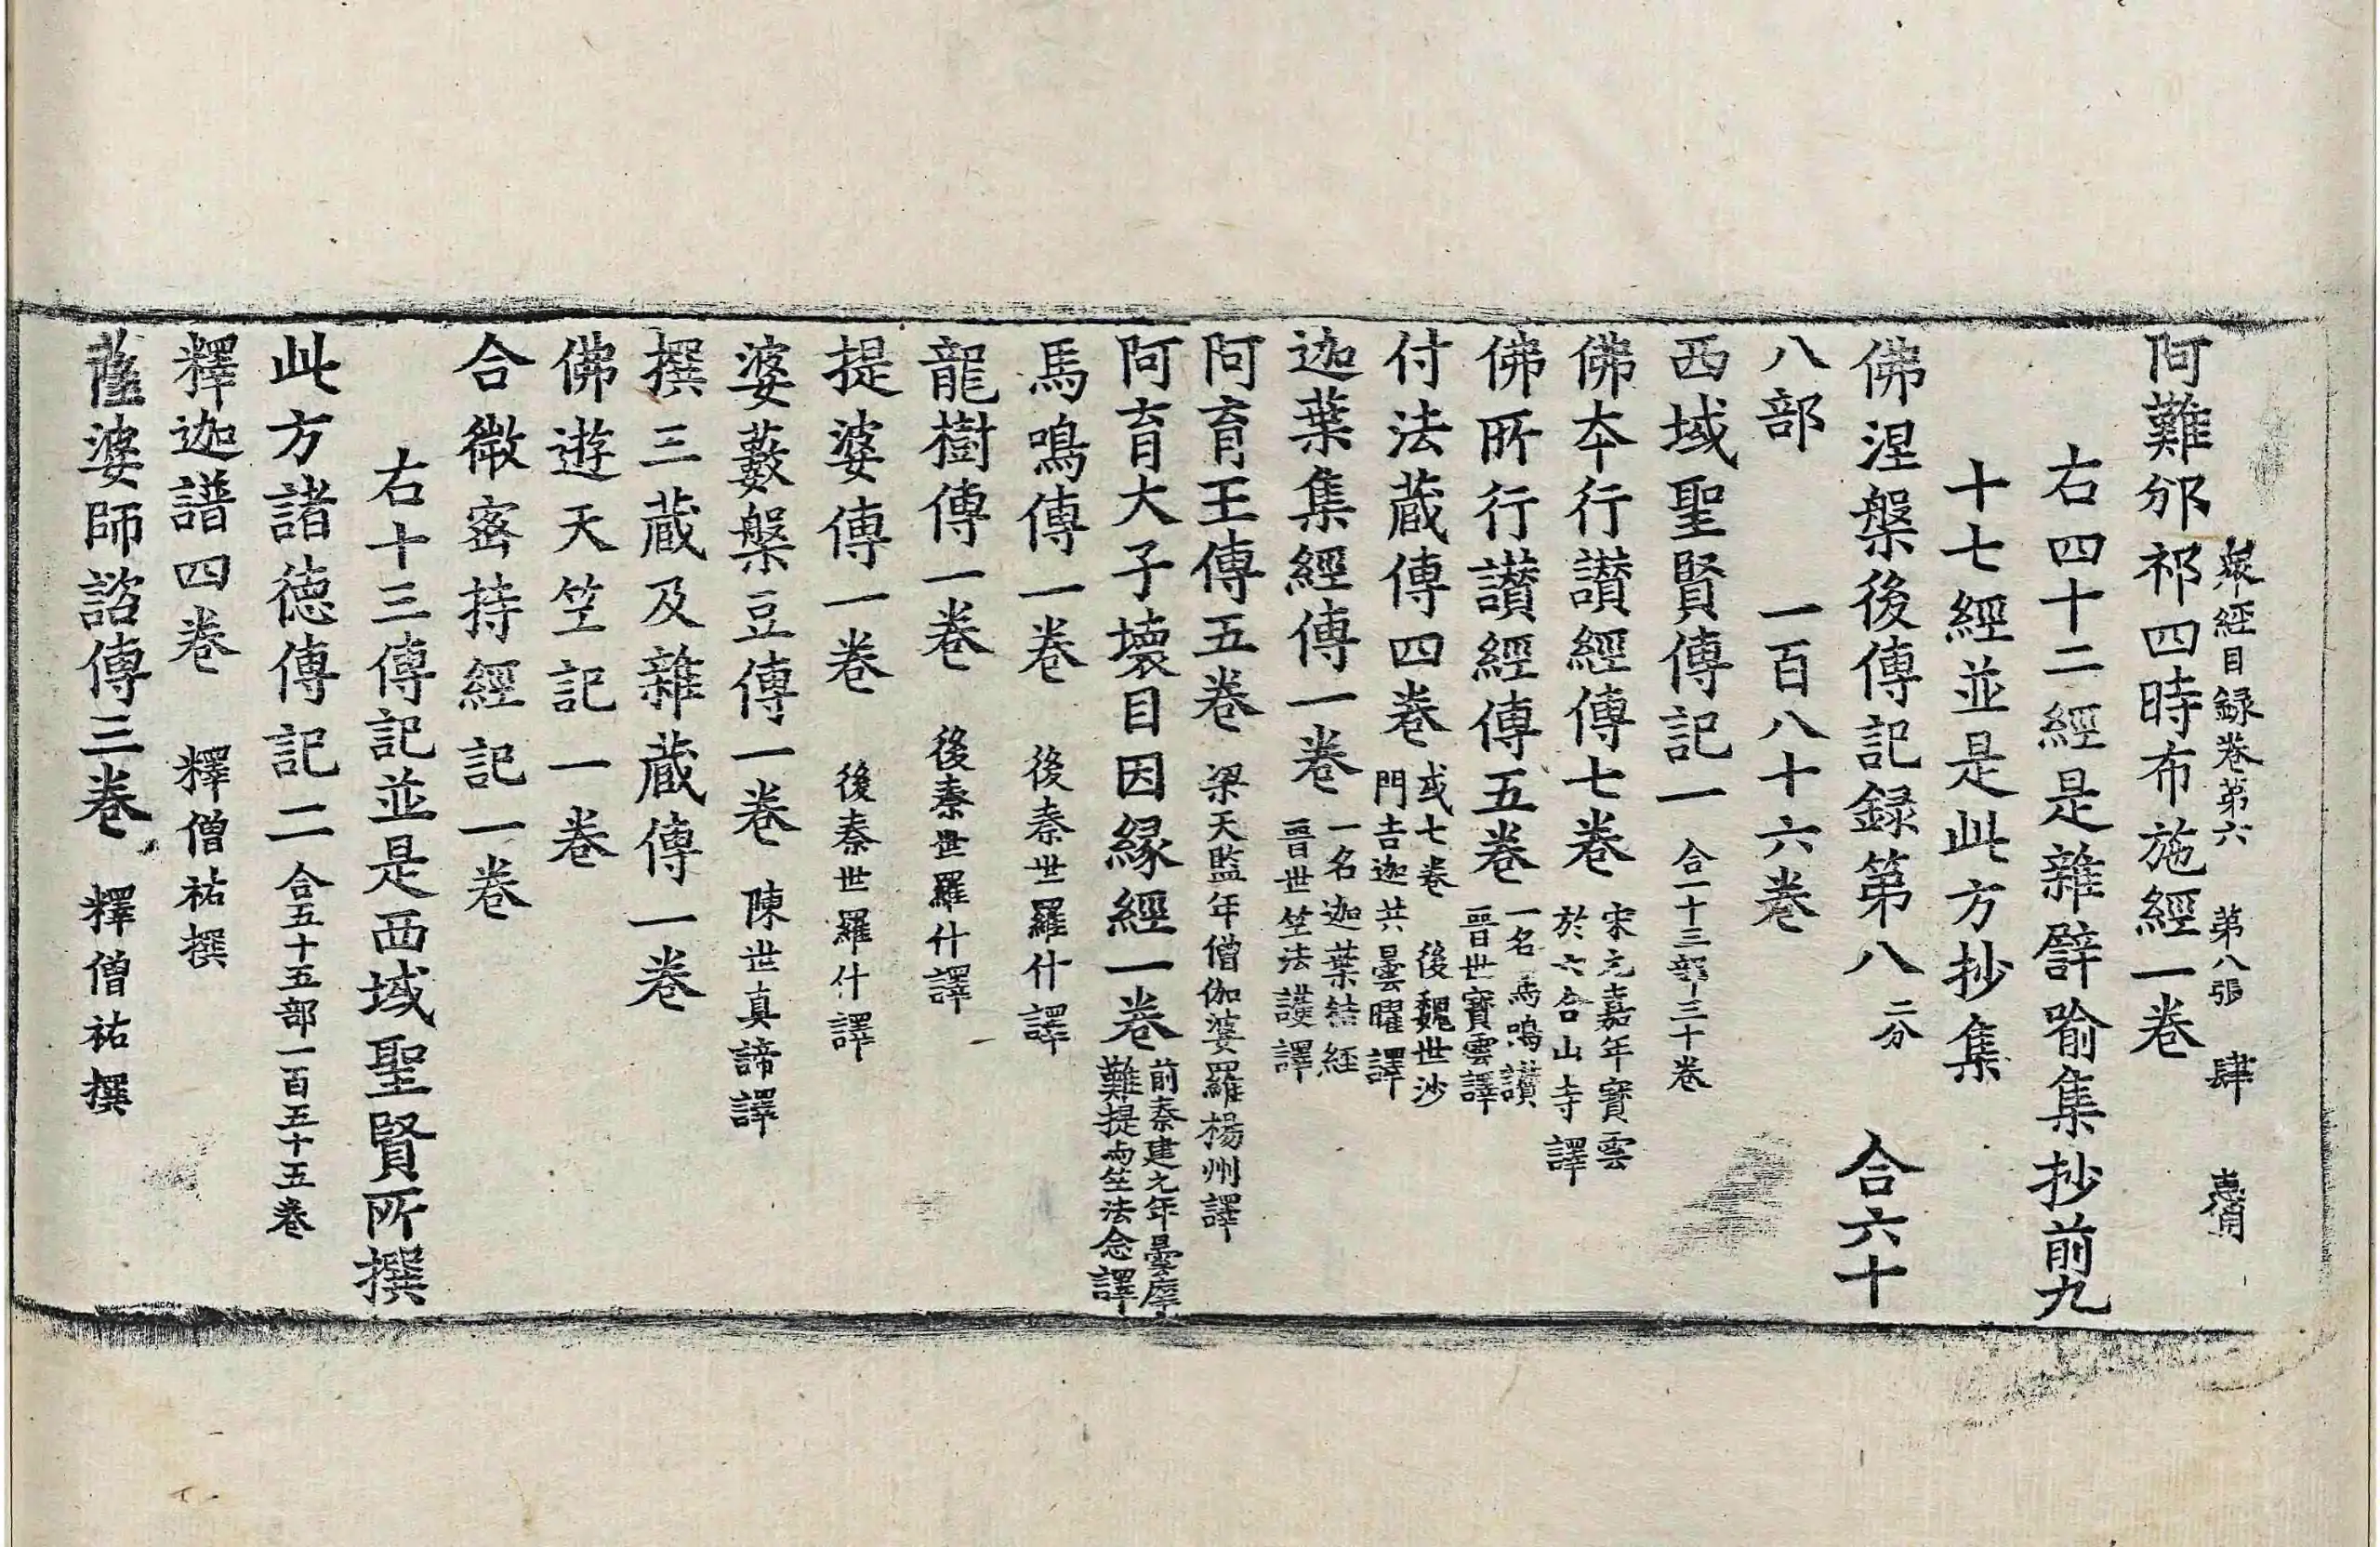 衆經目録卷第六　第八張　肆
阿難邠祁四時布施經一卷
右四十二經是雜譬喻集抄前九
十七經並是此方抄集
佛涅槃後傳記録第八 二分 合六十
八部　一百八十六卷
西域聖賢傳記一 合一十三部三十卷
佛本行讃經傳七卷 宋元嘉年寳雲
於六合山寺譯
佛所行讃經傳五卷 一名馬鳴讃
晋世寳雲譯
付法藏傳四卷 或七卷　後魏世沙
門吉迦共曇曜譯
迦葉集經傳一卷 一名迦葉結經
晋世竺法護譯
阿育王傳五卷 梁天監年僧伽婆羅楊州譯
阿育大子壞目因縁經一卷 前秦建元年曇摩
難提共竺法念譯
馬鳴傳一卷　後秦世羅什譯
龍樹傳一卷　後秦世羅什譯
提婆傳一卷　後秦世羅什譯
婆藪槃豆傳一卷　陳世真諦譯
撰三藏及雜藏傳一卷
佛遊天竺記一卷
合微密持經記一卷
右十三傳記並是西域聖賢所撰
此方諸德傳記二 合五十五部一百五十五卷
釋迦譜四卷　釋僧祐撰
薩婆師諮傳三卷　釋僧祐撰